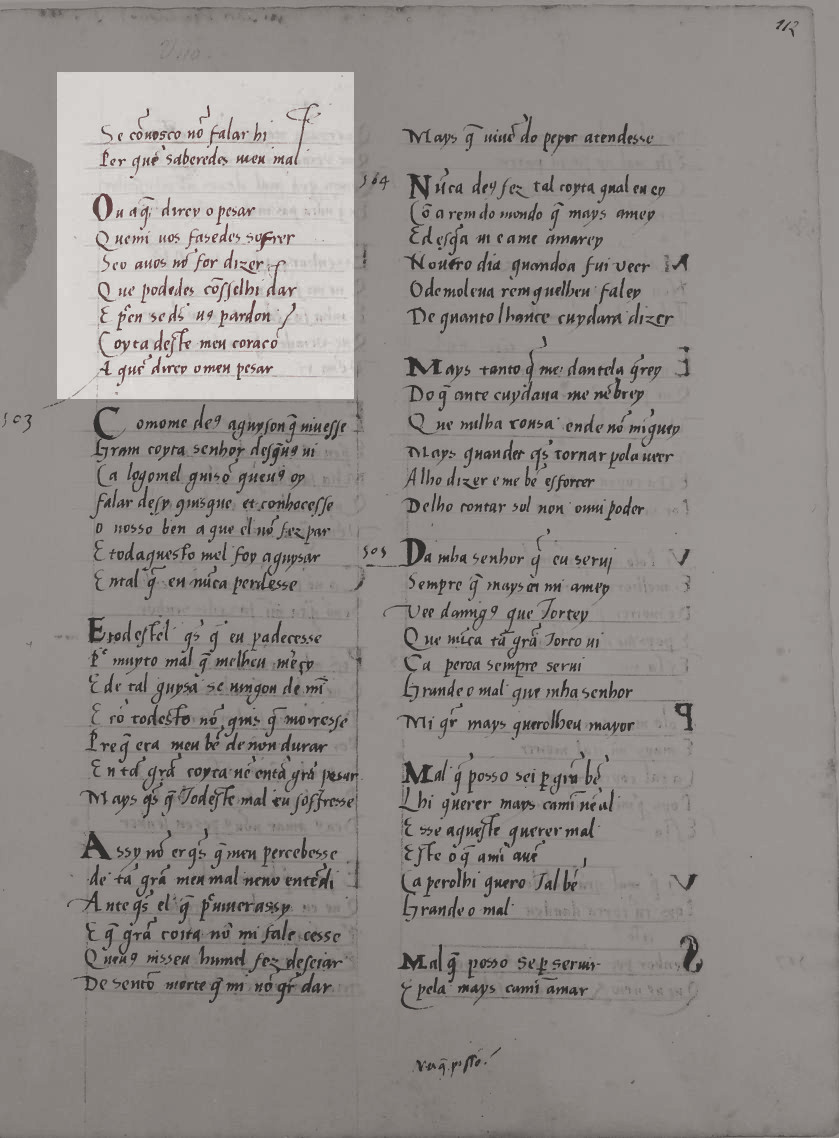 112
Se cõuosco nõ falar hi
Per quẽ saberedes meu mal
Ou a q̃ direy o pesar
Quemi uos fasedes sofrer
Seo auos nõ for dizer
Que podedes cõsselhi dar
E p̃en se ds̃ uꝯ pardon
Coyta deste meu coraçõ
A quẽ direy o meu pesar
503
Comome deꝯ aguyson q̃ niuesse
Gram coyta senhor desq̃uꝯ ui
Ca logomel guisõ queuꝯ oy
falar desy quisque et conhocesse
o nosso ben a que el nõ fez par
E todaquesto mel foy aguysar
Ental q̃ eu nũca perdesse
E todestel q̃s q̃ eu padecesse
P̃ muyto mal q̃ melheu meʼçy
E de tal guysa se uingou de mĩ
E cõ todesto nõ quis q̃ moiresse
Pre q̃ era meu bẽ de non durar
En tã grã coyta nẽ entã grã pesar
Mays q̃s q̃ Todeste mal eu soffresse
Assy nõ er q̃s q̃ meu percebesse
de tã grã meu mal neno entẽdi
Ante q̃s el q̃ p̃uiuerassy
E q̃ grã coita nõ mi falecesse
Queuꝯ uisseu humel fez deseiar
De sentõ morte q̃ mi nõ q̃r dar
Mays q̃ uiuẽdo peyor atendesse
504
Nũca deꝯ fez tal coyta qual eu ey
Cõ a rem do mondo q̃ mays amey
E desq̃a ui e ame amarey
Noutro dia quandoa fui ueer
O demo leua rem quelheu faley
De quanto lhante cuydara dizer
Mays tanto q̃ me dantela q̃rey
Do q̃ ante cuydaua me nẽbrey
Que nulha cousa ende nõ miguey
Mays quander q̃s tornar pola ueer
A lho dizer e me bẽ esforcer
Delho contar sol non ouui poder
505
Da mha senhor q̃ eu serui
Sempre q̃ mays ca mi amey
Veed amigꝯ que Tortey
Que nũca tã grã Torto ui
Ca peroa sempre serui
Grande o mal que mha senhor
Mi q̃r mays querolheu mayor
Mal q̃ posso sei p̱ grã bẽ
Lhi querer mays camĩ nẽ al
E sse aqueste querer mal
Este o q̃ ami auẽ
Ca perolhi quero Tal bẽ
Grande o mal
Mal q̃ posso se p̱ seruir
E pela mays camĩ amar